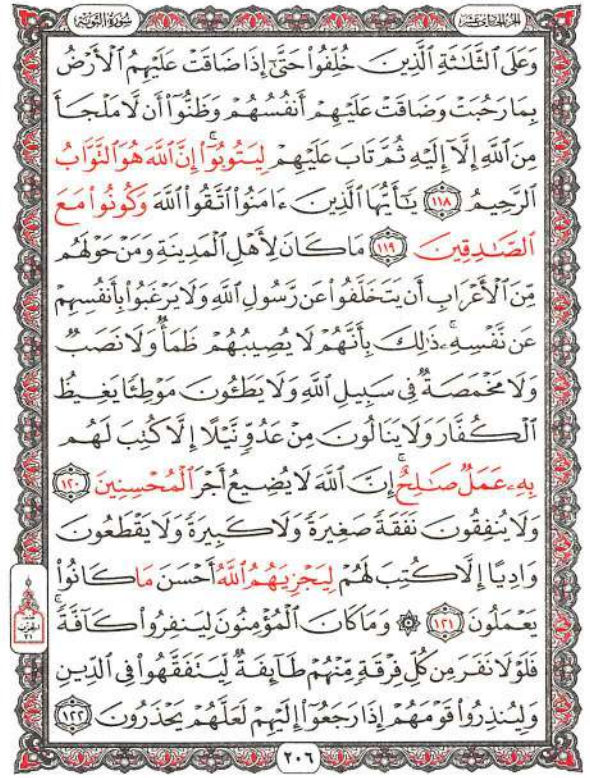 الجزء الحادي عشر
سورة التوبة
وَعَلَى ٱلثَّلَٰثَةِ ٱلَّذِينَ خُلِّفُوا۟ حَتَّىٰٓ إِذَا ضَاقَتْ عَلَيْهِمُ ٱلْأَرْضُ
بِمَا رَحُبَتْ وَضَاقَتْ عَلَيْهِمْ أَنفُسُهُمْ وَظَنُّوٓا۟ أَن لَّا مَلْجَأَ
مِنَ ٱللَّهِ إِلَّآ إِلَيْهِ ثُمَّ تَابَ عَلَيْهِمْ لِيَتُوبُوٓا۟ ۚ إِنَّ ٱللَّهَ هُوَ ٱلتَّوَّابُ
ٱلرَّحِيمُ ١١٨ يَٰٓأَيُّهَا ٱلَّذِينَ ءَامَنُوا۟ ٱتَّقُوا۟ ٱللَّهَ وَكُونُوا۟ مَعَ
ٱلصَّٰدِقِينَ ١١٩ مَا كَانَ لِأَهْلِ ٱلْمَدِينَةِ وَمَنْ حَوْلَهُم
مِّنَ ٱلْأَعْرَابِ أَن يَتَخَلَّفُوا۟ عَن رَّسُولِ ٱللَّهِ وَلَا يَرْغَبُوا۟ بِأَنفُسِهِمْ
عَن نَّفْسِهِۦ ۚ ذَٰلِكَ بِأَنَّهُمْ لَا يُصِيبُهُمْ ظَمَأٌ وَلَا نَصَبٌ
وَلَا مَخْمَصَةٌ فِى سَبِيلِ ٱللَّهِ وَلَا يَطَـُٔونَ مَوْطِئًا يَغِيظُ
ٱلْكُفَّارَ وَلَا يَنَالُونَ مِنْ عَدُوٍّ نَّيْلًا إِلَّا كُتِبَ لَهُم
بِهِۦ عَمَلٌ صَٰلِحٌ ۚ إِنَّ ٱللَّهَ لَا يُضِيعُ أَجْرَ ٱلْمُحْسِنِينَ ١٢٠
وَلَا يُنفِقُونَ نَفَقَةً صَغِيرَةً وَلَا كَبِيرَةً وَلَا يَقْطَعُونَ
وَادِيًا إِلَّا كُتِبَ لَهُمْ لِيَجْزِيَهُمُ ٱللَّهُ أَحْسَنَ مَا كَانُوا۟
يَعْمَلُونَ ١٢١ ۞ وَمَا كَانَ ٱلْمُؤْمِنُونَ لِيَنفِرُوا۟ كَآفَّةً ۚ
فَلَوْلَا نَفَرَ مِن كُلِّ فِرْقَةٍ مِّنْهُمْ طَآئِفَةٌ لِّيَتَفَقَّهُوا۟ فِى ٱلدِّينِ
وَلِيُنذِرُوا۟ قَوْمَهُمْ إِذَا رَجَعُوٓا۟ إِلَيْهِمْ لَعَلَّهُمْ يَحْذَرُونَ ١٢٢
الحزب
٢١
٢٠٦